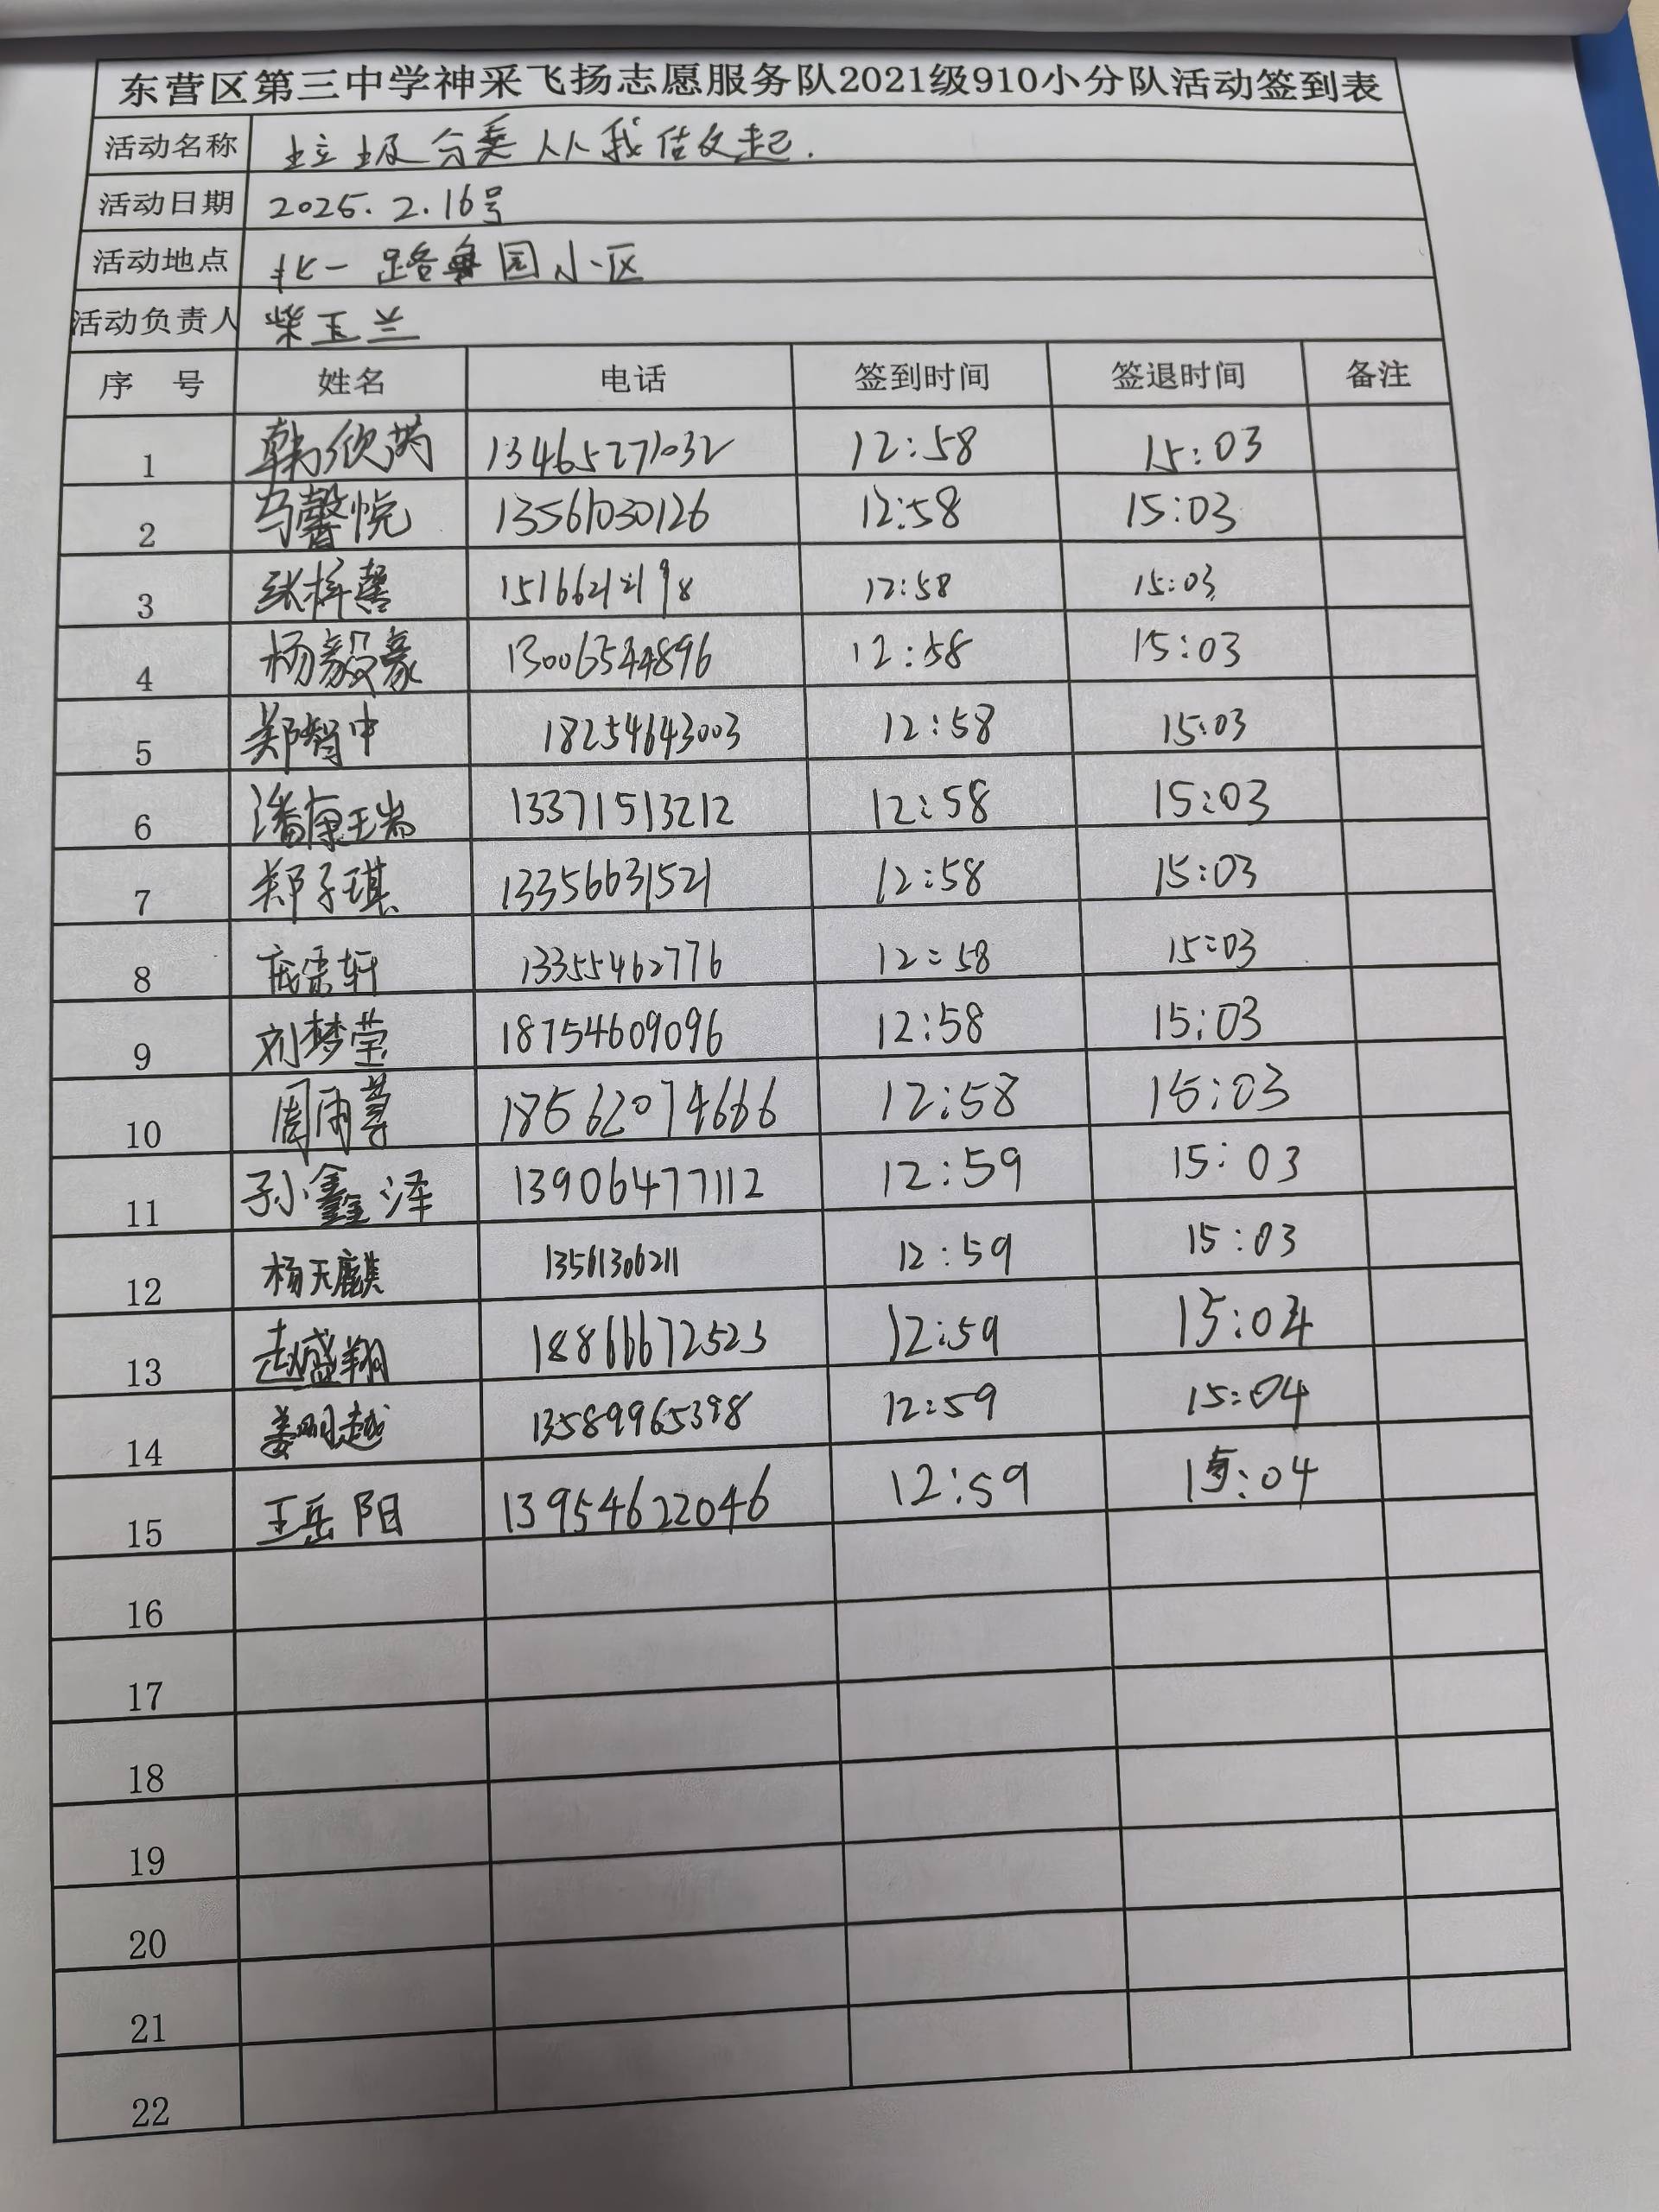 东营区第三中学神采飞扬志愿服务队2021级910小分队活动签到表
活动名称 垃圾分类从我做起.
活动日期 2025.2.16号
活动地点 北一路鲁园小区
活动负责人 柴玉兰
序 号 姓名 电话 签到时间 签退时间 备注
1 韩欣芮 13465271032 12:58 15:03
2 马馨悦 13561030126 12:58 15:03
3 张梓馨 12:58 15:03
4 杨毅豪 13006544896 12:58 15:03
5 郑智中 18254643003 12:58 15:03
6 潘康瑞 13371513212 12:58 15:03
7 郑子琪 13356631521 12:58 15:03
8 轩 13355462776 12:58 15:03
9 刘梦莹 18754609096 12:58 15:03
10 周雨萱 18562074666 12:58 15:03
11 孙鑫泽 13906477112 12:59 15:03
12 杨天麒 13561306211 12:59 15:03
13 赵盛翔 18866672523 12:59 15:04
14 姜明越 13589965398 12:59 15:04
15 王岳阳 13954622046 12:59 15:04
16
17
18
19
20
21
22